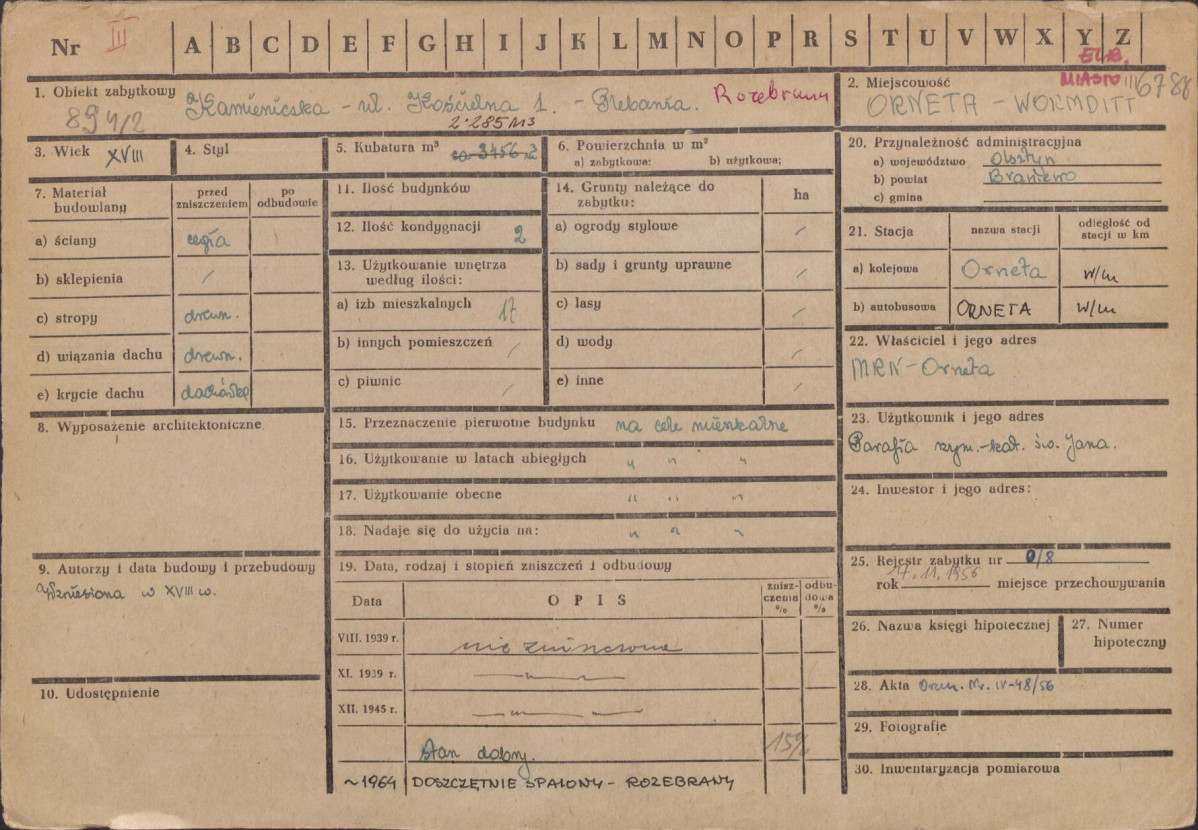 Nr III A B C D E F G H I J K L M N O P R S T U V W X Y Z
ELB.
MIASTO 6788
1. Obiekt zabytkowy Kamieniczka - ul. Kościelna 1. - Plebania. Rozebrany
894/2
2. Miejscowość
ORNETA - WORMDITT
3. Wiek XVIII
4. Styl
2.285 M3
5. Kubatura m³ ca 3456 m3
6. Powierzchnia w m²
a) zabytkowa: b) użytkowa;
7. Materiał budowlany
przed zniszczeniem
po odbudowie
a) ściany cegła
b) sklepienia /
c) stropy drewn.
d) wiązania dachu drewn.
e) krycie dachu dachówka
8. Wyposażenie architektoniczne
9. Autorzy i data budowy i przebudowy
Wzniesiona w XVIII w.
10. Udostępnienie
11. Ilość budynków
12. Ilość kondygnacji 2
13. Użytkowanie wnętrza
według ilości:
a) izb mieszkalnych 17
b) innych pomieszczeń /
c) piwnic /
14. Grunty należące do
zabytku: ha
a) ogrody stylowe /
b) sady i grunty uprawne /
c) lasy /
d) wody /
e) inne /
15. Przeznaczenie pierwotne budynku na cele mieszkalne
16. Użytkowanie w latach ubiegłych " " "
17. Użytkowanie obecne " " "
18. Nadaje się do użycia na: " " "
19. Data, rodzaj i stopień zniszczeń i odbudowy
Data OPIS zniszczenia % odbudowa %
VIII. 1939 r. nie zniszczone
XI. 1939 r. —„—
XII. 1945 r. —„—
stan dobry. 15%
~1964 DOSZCZĘTNIE SPALONY - ROZEBRANY
20. Przynależność administracyjna
a) województwo Olsztyn
b) powiat Braniewo
c) gmina
21. Stacja nazwa stacji odległość od stacji w km
a) kolejowa Orneta w/m
b) autobusowa ORNETA w/m
22. Właściciel i jego adres
MRN - Orneta
23. Użytkownik i jego adres
Parafia rzym.-kat. św. Jana.
24. Inwestor i jego adres:
25. Rejestr zabytku nr 0/8
rok 17.11.1956 miejsce przechowywania
26. Nazwa księgi hipotecznej
27. Numer
hipoteczny
28. Akta Orzn. Nr. IV-48/56
29. Fotografie
30. Inwentaryzacja pomiarowa